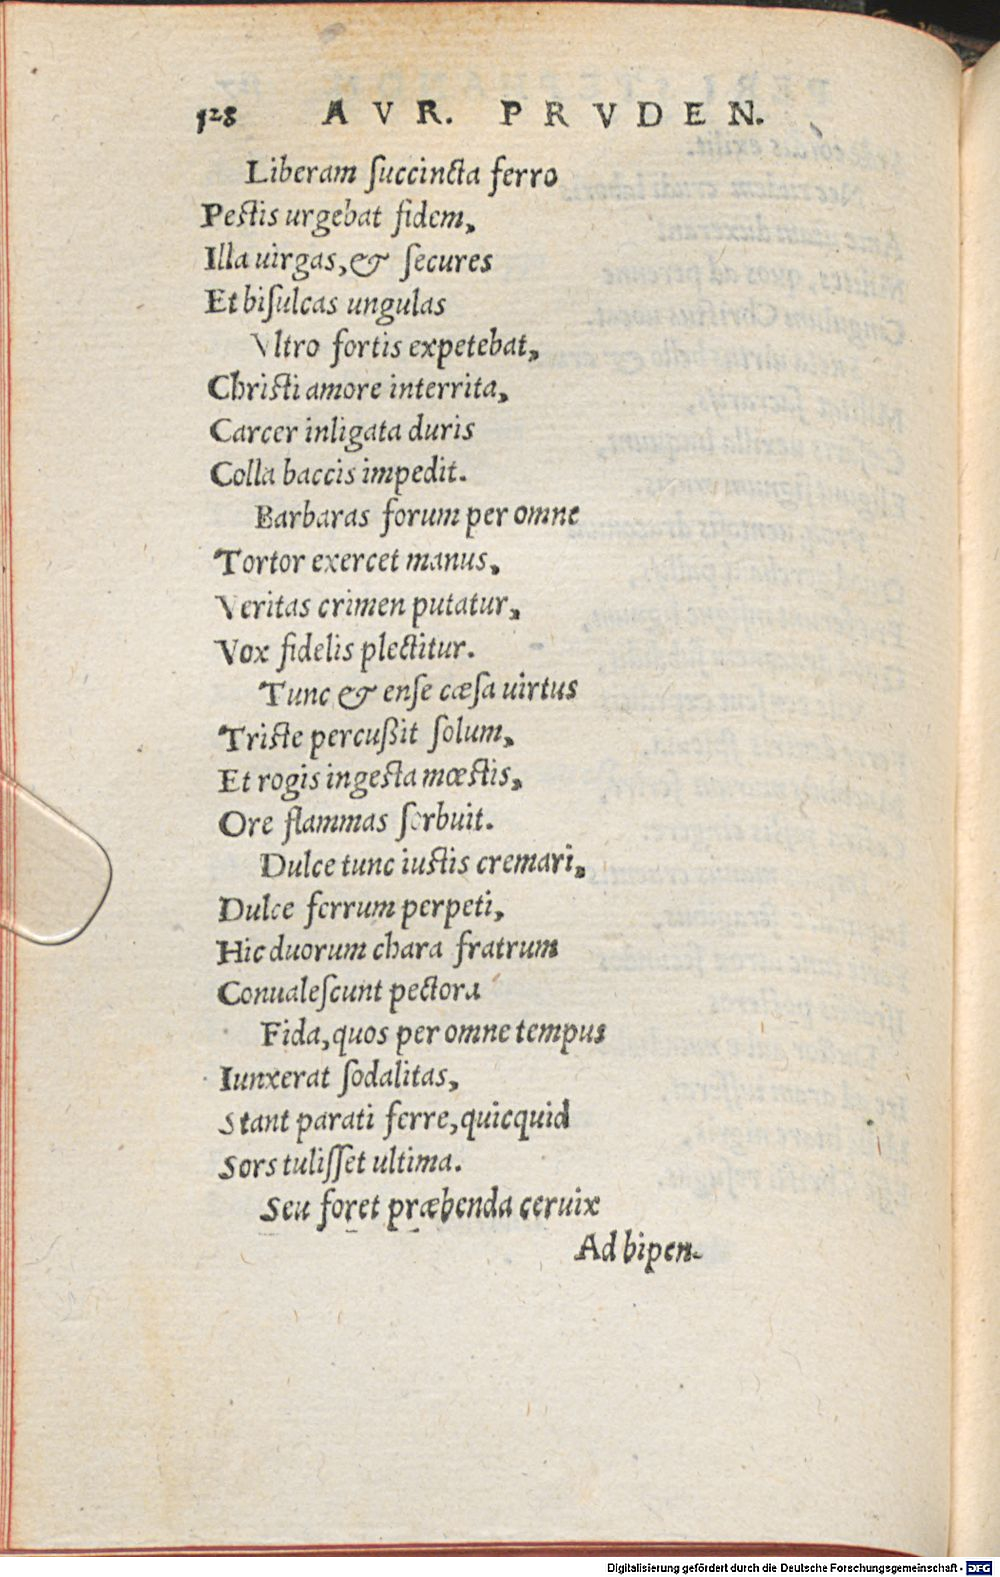 128 AVR. PRVDEN.
Liberam ſuccincta ferro
Peſtis urgebat fidem,
Illa uirgas, & ſecures
Et biſulcas ungulas
Vltro fortis expetebat,
Chriſti amore interrita,
Carcer inligata duris
Colla baccis impedit.
Barbaras forum per omne
Tortor exercet manus,
Veritas crimen putatur,
Vox fidelis plectitur.
Tunc & enſe cæſa uirtus
Triſte percußit ſolum,
Et rogis ingeſta mœſtis,
Ore flammas ſorbuit.
Dulce tunc iuſtis cremari,
Dulce ferrum perpeti,
Hic duorum chara fratrum
Conualeſcunt pectora
Fida, quos per omne tempus
Iunxerat ſodalitas,
Stant parati ferre, quicquid
Sors tuliſſet ultima.
Seu foret præbenda ceruix
Ad bipen-
Digitalisierung gefördert durch die Deutsche Forschungsgemeinschaft - DFG